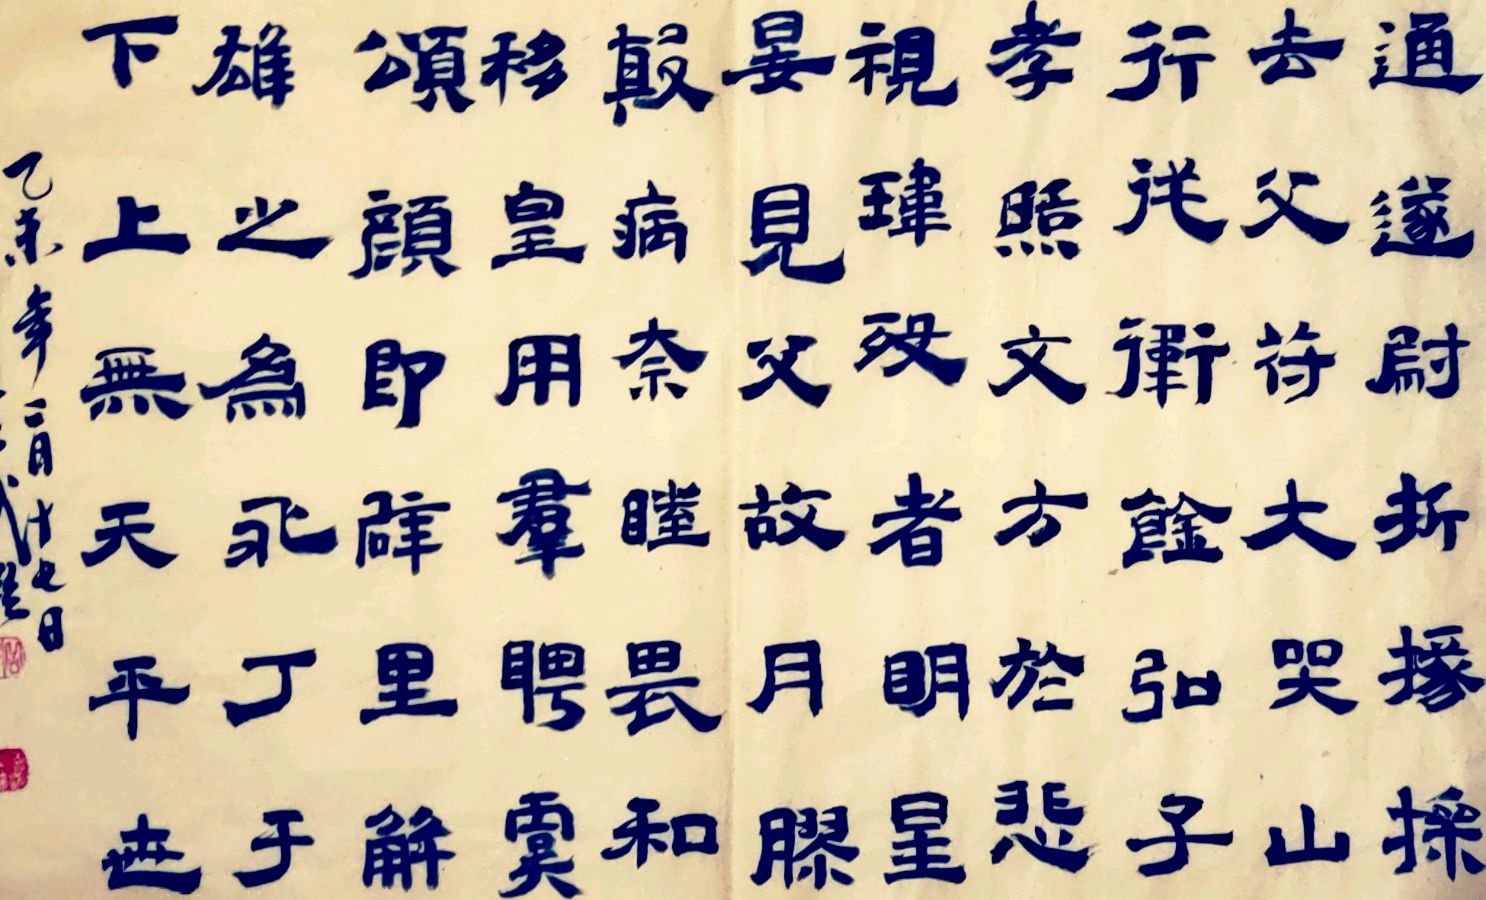 通遂尉折掾採
去父苻大哭山
行弘子
孝照文方於悲
視瑋歿者明星
晏見父故月膠
病奈睦畏和
移皇用羣聘虞
頌顏即辟里解
雄之為丁于
下上無天平世
乙未年二月廿七日